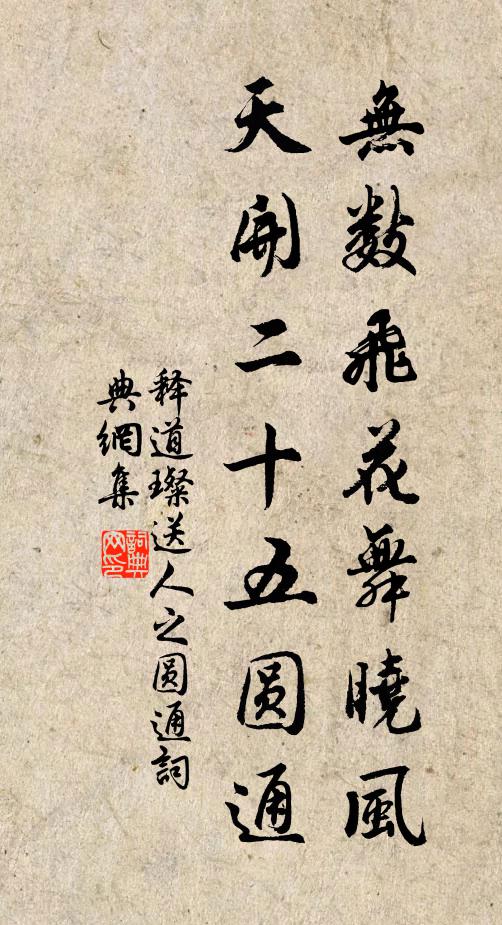 無數飛花舞曉風
天開二十五圆通
释道璨送人之圆通詞
典網集
詞典網印